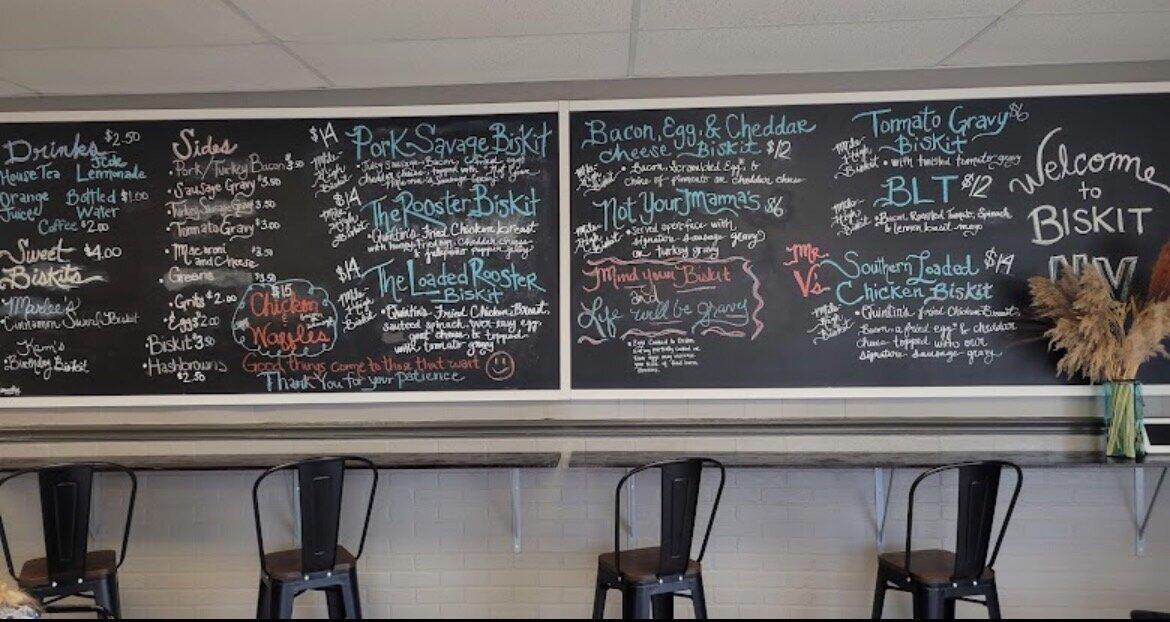 Drinks $2.50
House Tea Lemonade
Orange Juice Bottled Water $1.00
Coffee $2.00
Sweet Biskits $4.00
Cinnamon Swirl Biskit
Birthday Biskit
Sides
Pork/Turkey Bacon $3.50
• Sausage Gravy $3.50
Turkey Sausage Gravy $3.50
• Tomato Gravy $3.00
• Macaroni and Cheese
Greens $3.50
• Grits $2.00
• Eggs $2.00
• Biskit $3.50
• Hashbrowns $2.50
$15
Chicken
Waffles
Good things come to those that wait
Thank You for your Patience
$14 Pork Savage Biskit
Mile High Biskit
$14 The Rooster Biskit
Mile High Biskit
• Quintin's Fried Chicken breast
with honey, fried egg, cheddar cheese
& jalapeno
$14 The Loaded Rooster
Biskit
Mile High Biskit
• Quintin's Fried Chicken Breast,
sauteed spinach, over easy egg,
goat cheese & topped
with tomato gravy
Bacon, Egg, & Cheddar
Cheese Biskit $12
Mile High Biskit
• Bacon, Scrambled Egg, &
choice of pimento or cheddar cheese
Not Your Mama's $6
Mile High Biskit
• Served open face with
signature sausage gravy
or turkey gravy
Mind your Biskit
and
Life will be gravy
Tomato Gravy $6
Biskit
Mile High Biskit
• with twisted tomato gravy
BLT $12
Mile High Biskit
• Bacon, Roasted Tomato, Spinach
& lemon basil mayo
Mr V's
Southern Loaded $14
Chicken Biskit
Mile High Biskit
• Quintin's Fried Chicken Breast,
Bacon, a fried egg & cheddar
cheese topped with our
signature sausage gravy
Welcome
to
BISKIT